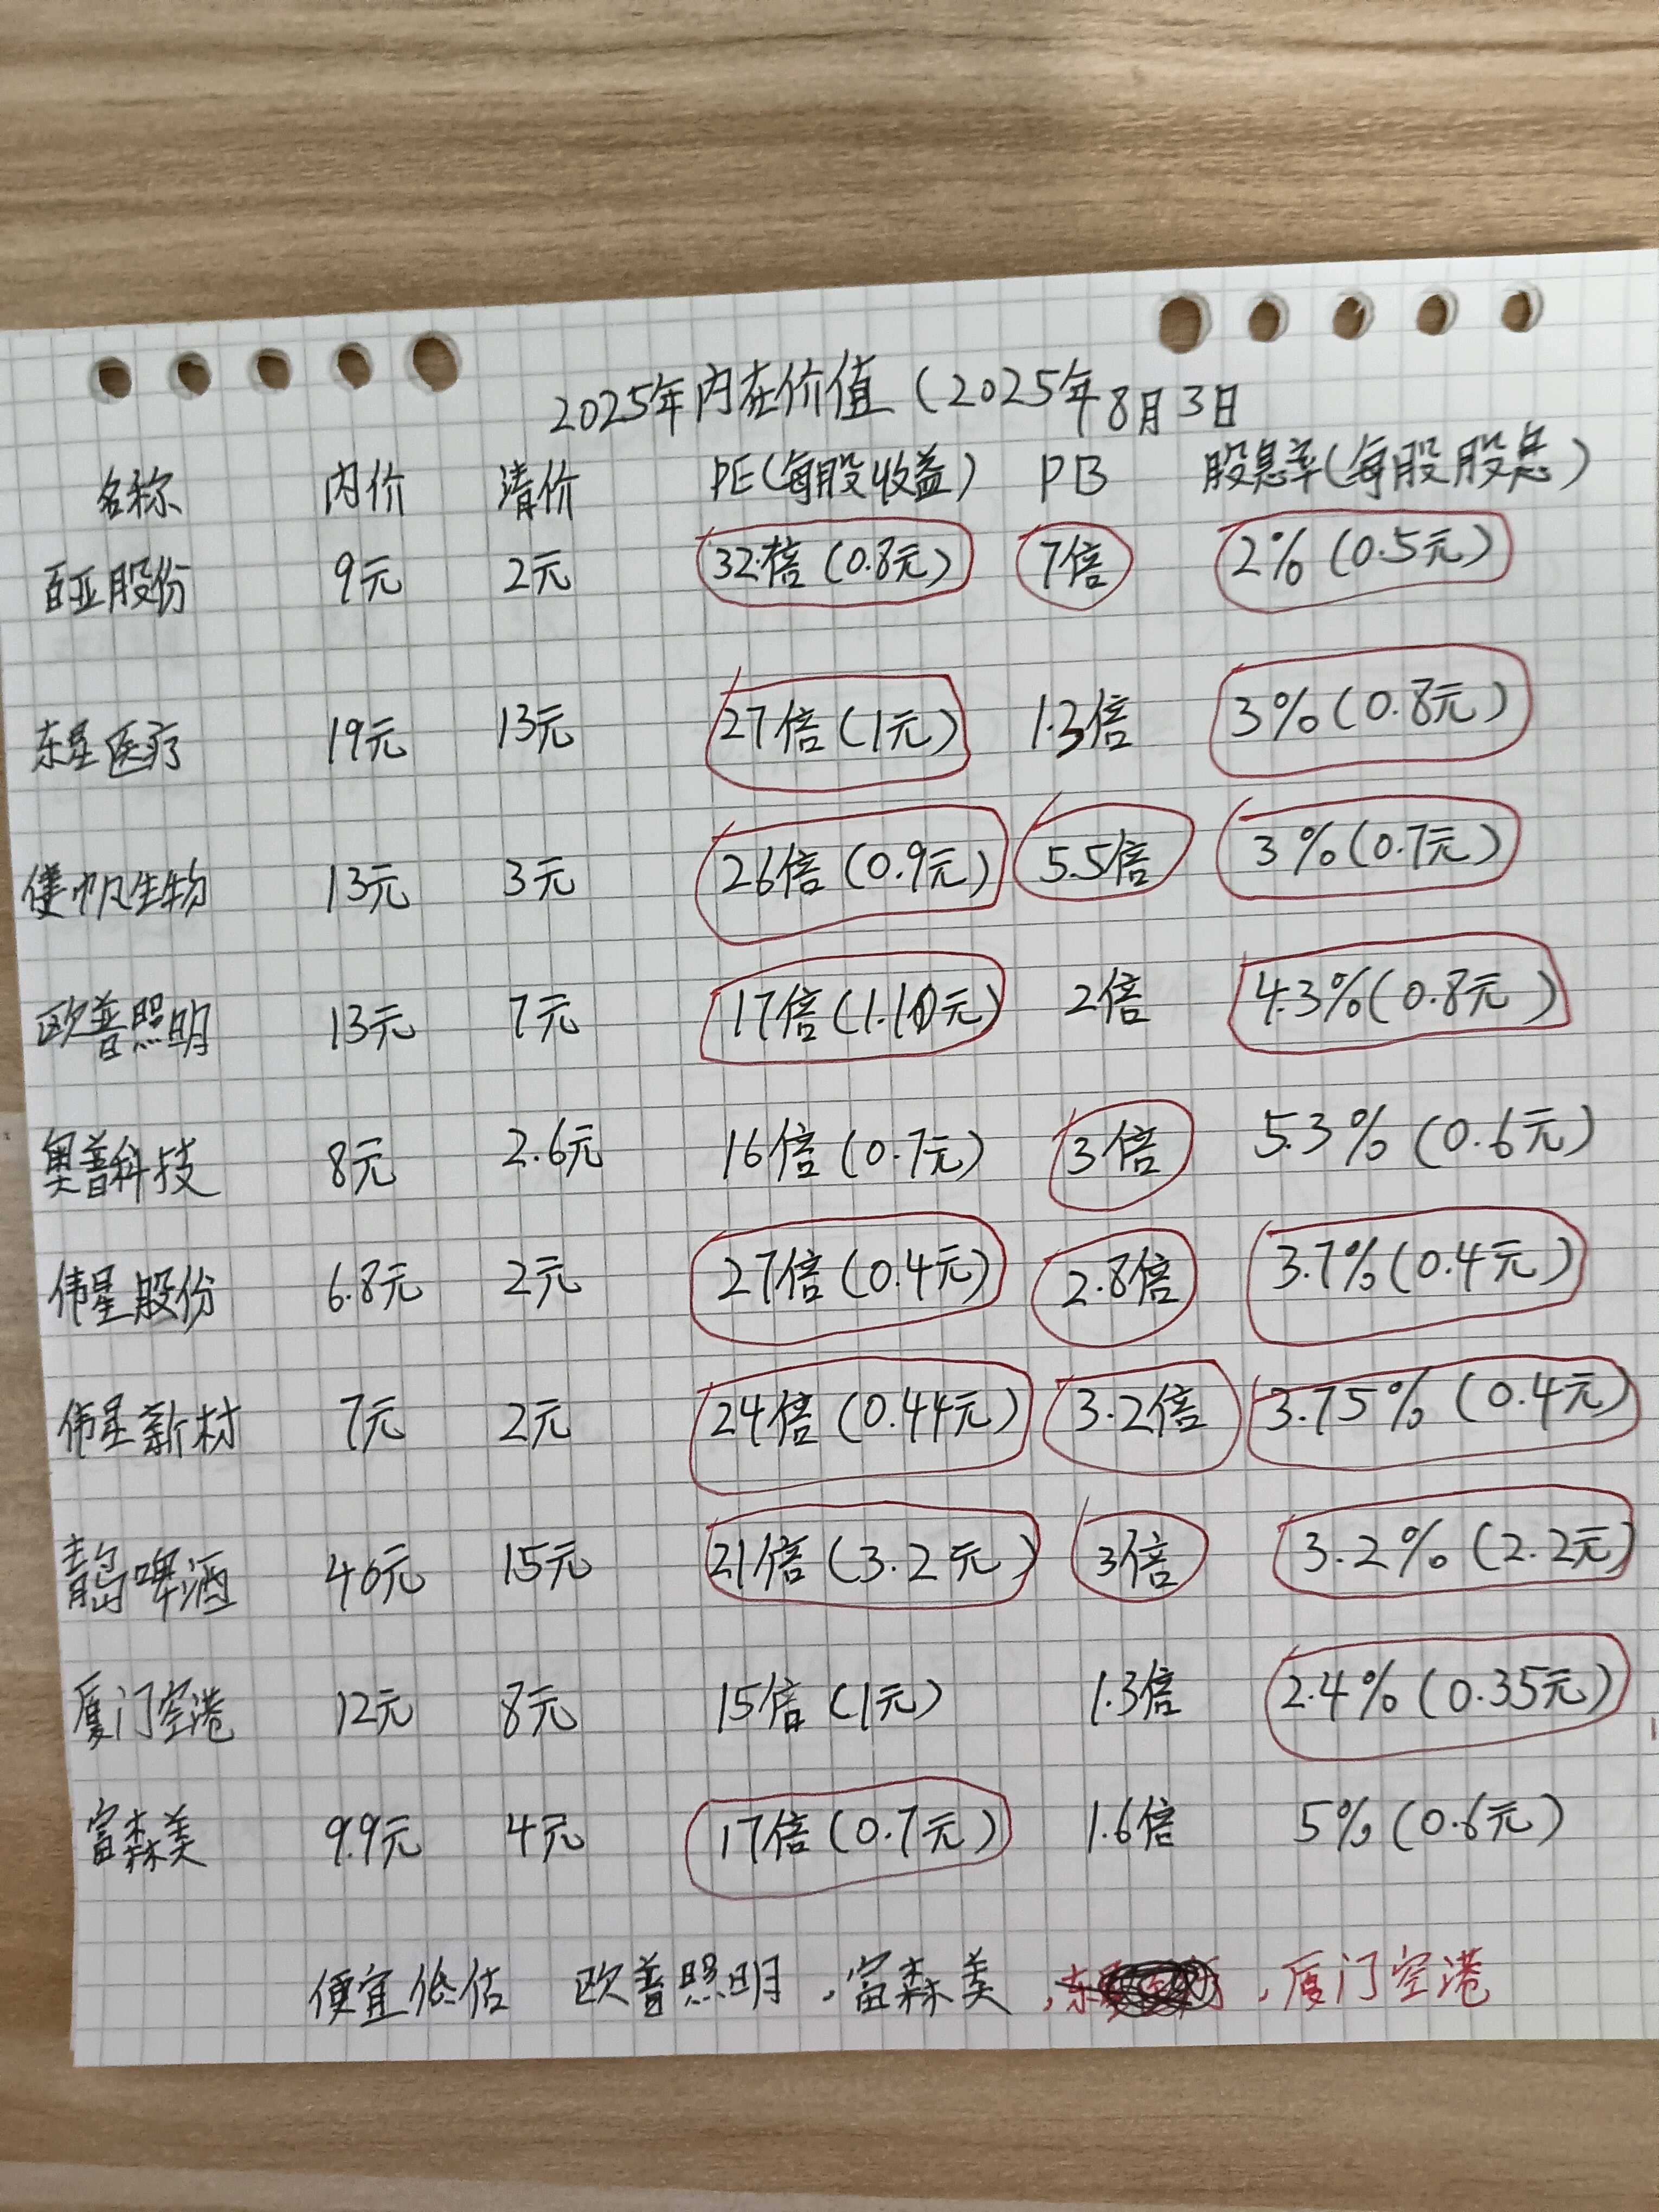 2025年内在价值（2025年8月3日
名称 内价 清价 PE（每股收益） PB 股息率（每股股息）
百亚股份 9元 2元 32倍（0.8元） 7倍 2%（0.5元）
东星医疗 19元 13元 27倍（1元） 1.3倍 3%（0.8元）
健帆生物 13元 3元 26倍（0.9元） 5.5倍 3%（0.7元）
欧普照明 13元 7元 17倍（1.10元） 2倍 4.3%（0.8元）
奥普科技 8元 2.6元 16倍（0.7元） 3倍 5.3%（0.6元）
伟星股份 6.8元 2元 27倍（0.4元） 2.8倍 3.7%（0.4元）
伟星新材 7元 2元 24倍（0.44元） 3.2倍 3.75%（0.4元）
青岛啤酒 40元 15元 21倍（3.2元） 3倍 3.2%（2.2元）
厦门空港 12元 8元 15倍（1元） 1.3倍 2.4%（0.35元）
富森美 9.9元 4元 17倍（0.7元） 1.6倍 5%（0.6元）
便宜低估 欧普照明，富森美，东，厦门空港